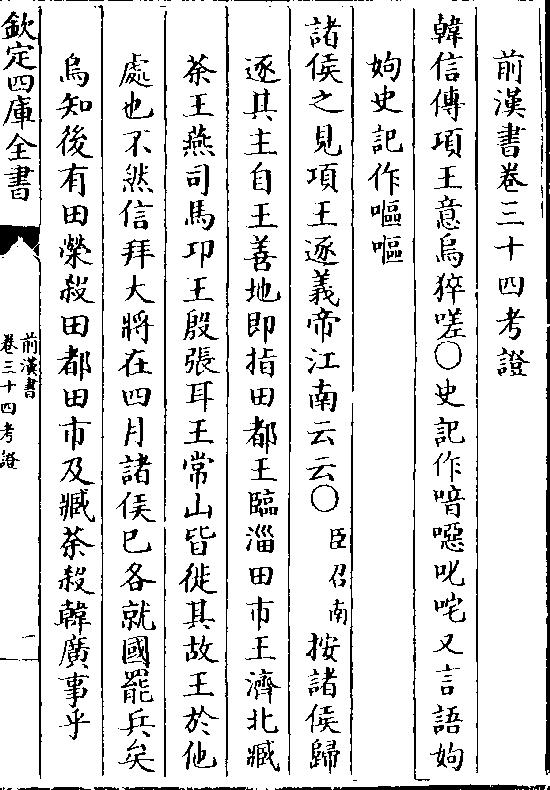 前漢書卷三十四考證
韓信傳項王意烏猝嗟○史記作喑噁叱咤又言語姁
姁史記作嘔嘔
諸侯之見項王逐義帝江南云云○臣召南按諸侯歸
逐其主自王善地即指田都王臨淄田市王濟北臧
荼王燕司馬卬王殷張耳王常山皆徙其故王於他
處也不然信拜大將在四月諸侯已各就國罷兵矣
烏知後有田榮殺田都田市及臧荼殺韓廣事乎
欽定四庫全書
前漢書
卷三十四考證
一